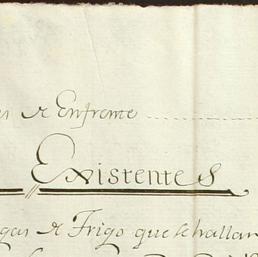 de Enfrente
Existentes
de Trigo que se hallan